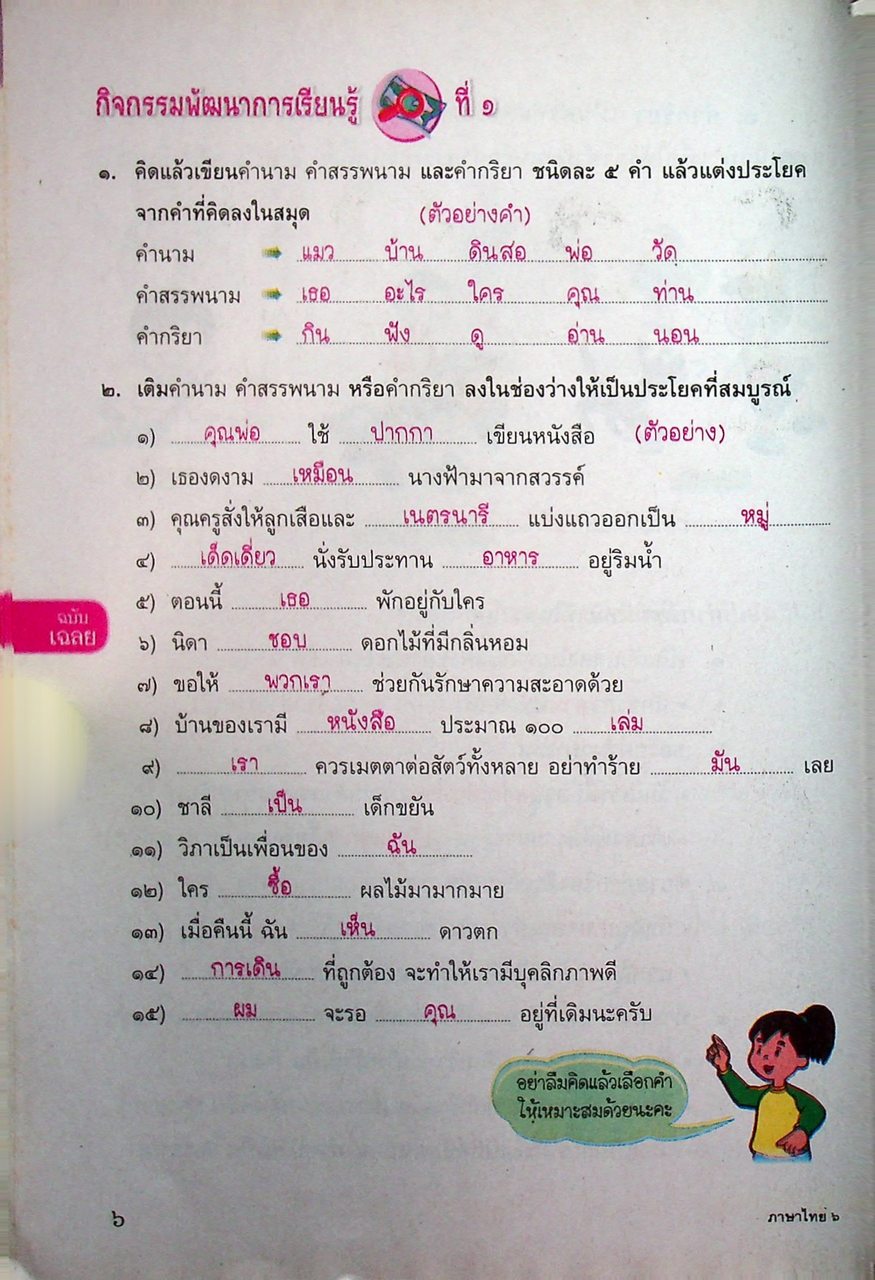 กิจกรรมพัฒนาการเรียนรู้ ที่ ๑
๑. คิดแล้วเขียนคำนาม คำสรรพนาม และคำกริยา ชนิดละ ๕ คำ แล้วแต่งประโยค
จากคำที่คิดลงในสมุด (ตัวอย่างคำ)
คำนาม แมว บ้าน ดินสอ พ่อ วัด
คำสรรพนาม เธอ อะไร ใคร คุณ ท่าน
คำกริยา กิน ฟัง ดู อ่าน นอน
๒. เติมคำนาม คำสรรพนาม หรือคำกริยา ลงในช่องว่างให้เป็นประโยคที่สมบูรณ์
๑) คุณพ่อ ใช้ ปากกา เขียนหนังสือ (ตัวอย่าง)
๒) เธองดงาม เหมือน นางฟ้ามาจากสวรรค์
๓) คุณครูสั่งให้ลูกเสือและ เนตรนารี แบ่งแถวออกเป็น หมู่
๔) เด็ดเดี่ยว นั่งรับประทาน อาหาร อยู่ริมน้ำ
๕) ตอนนี้ เธอ พักอยู่กับใคร
ฉบับ
เฉลย
๖) นิดา ชอบ ดอกไม้ที่มีกลิ่นหอม
๗) ขอให้ พวกเรา ช่วยกันรักษาความสะอาดด้วย
๘) บ้านของเรามี หนังสือ ประมาณ ๑๐๐ เล่ม
๙) เรา ควรเมตตาต่อสัตว์ทั้งหลาย อย่าทำร้าย มัน เลย
๑๐) ชาลี เป็น เด็กขยัน
๑๑) วิภาเป็นเพื่อนของ ฉัน
๑๒) ใคร ซื้อ ผลไม้มามากมาย
๑๓) เมื่อคืนนี้ ฉัน เห็น ดาวตก
๑๔) การเดิน ที่ถูกต้อง จะทำให้เรามีบุคลิกภาพดี
๑๕) ผม จะรอ คุณ อยู่ที่เดิมนะครับ
อย่าลืมคิดแล้วเลือกคำ
ให้เหมาะสมด้วยนะคะ
๖
ภาษาไทย ๖